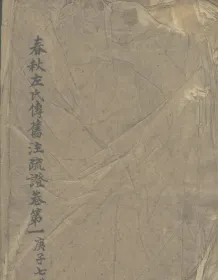 春秋左氏傳舊注疏證卷第一庚子七